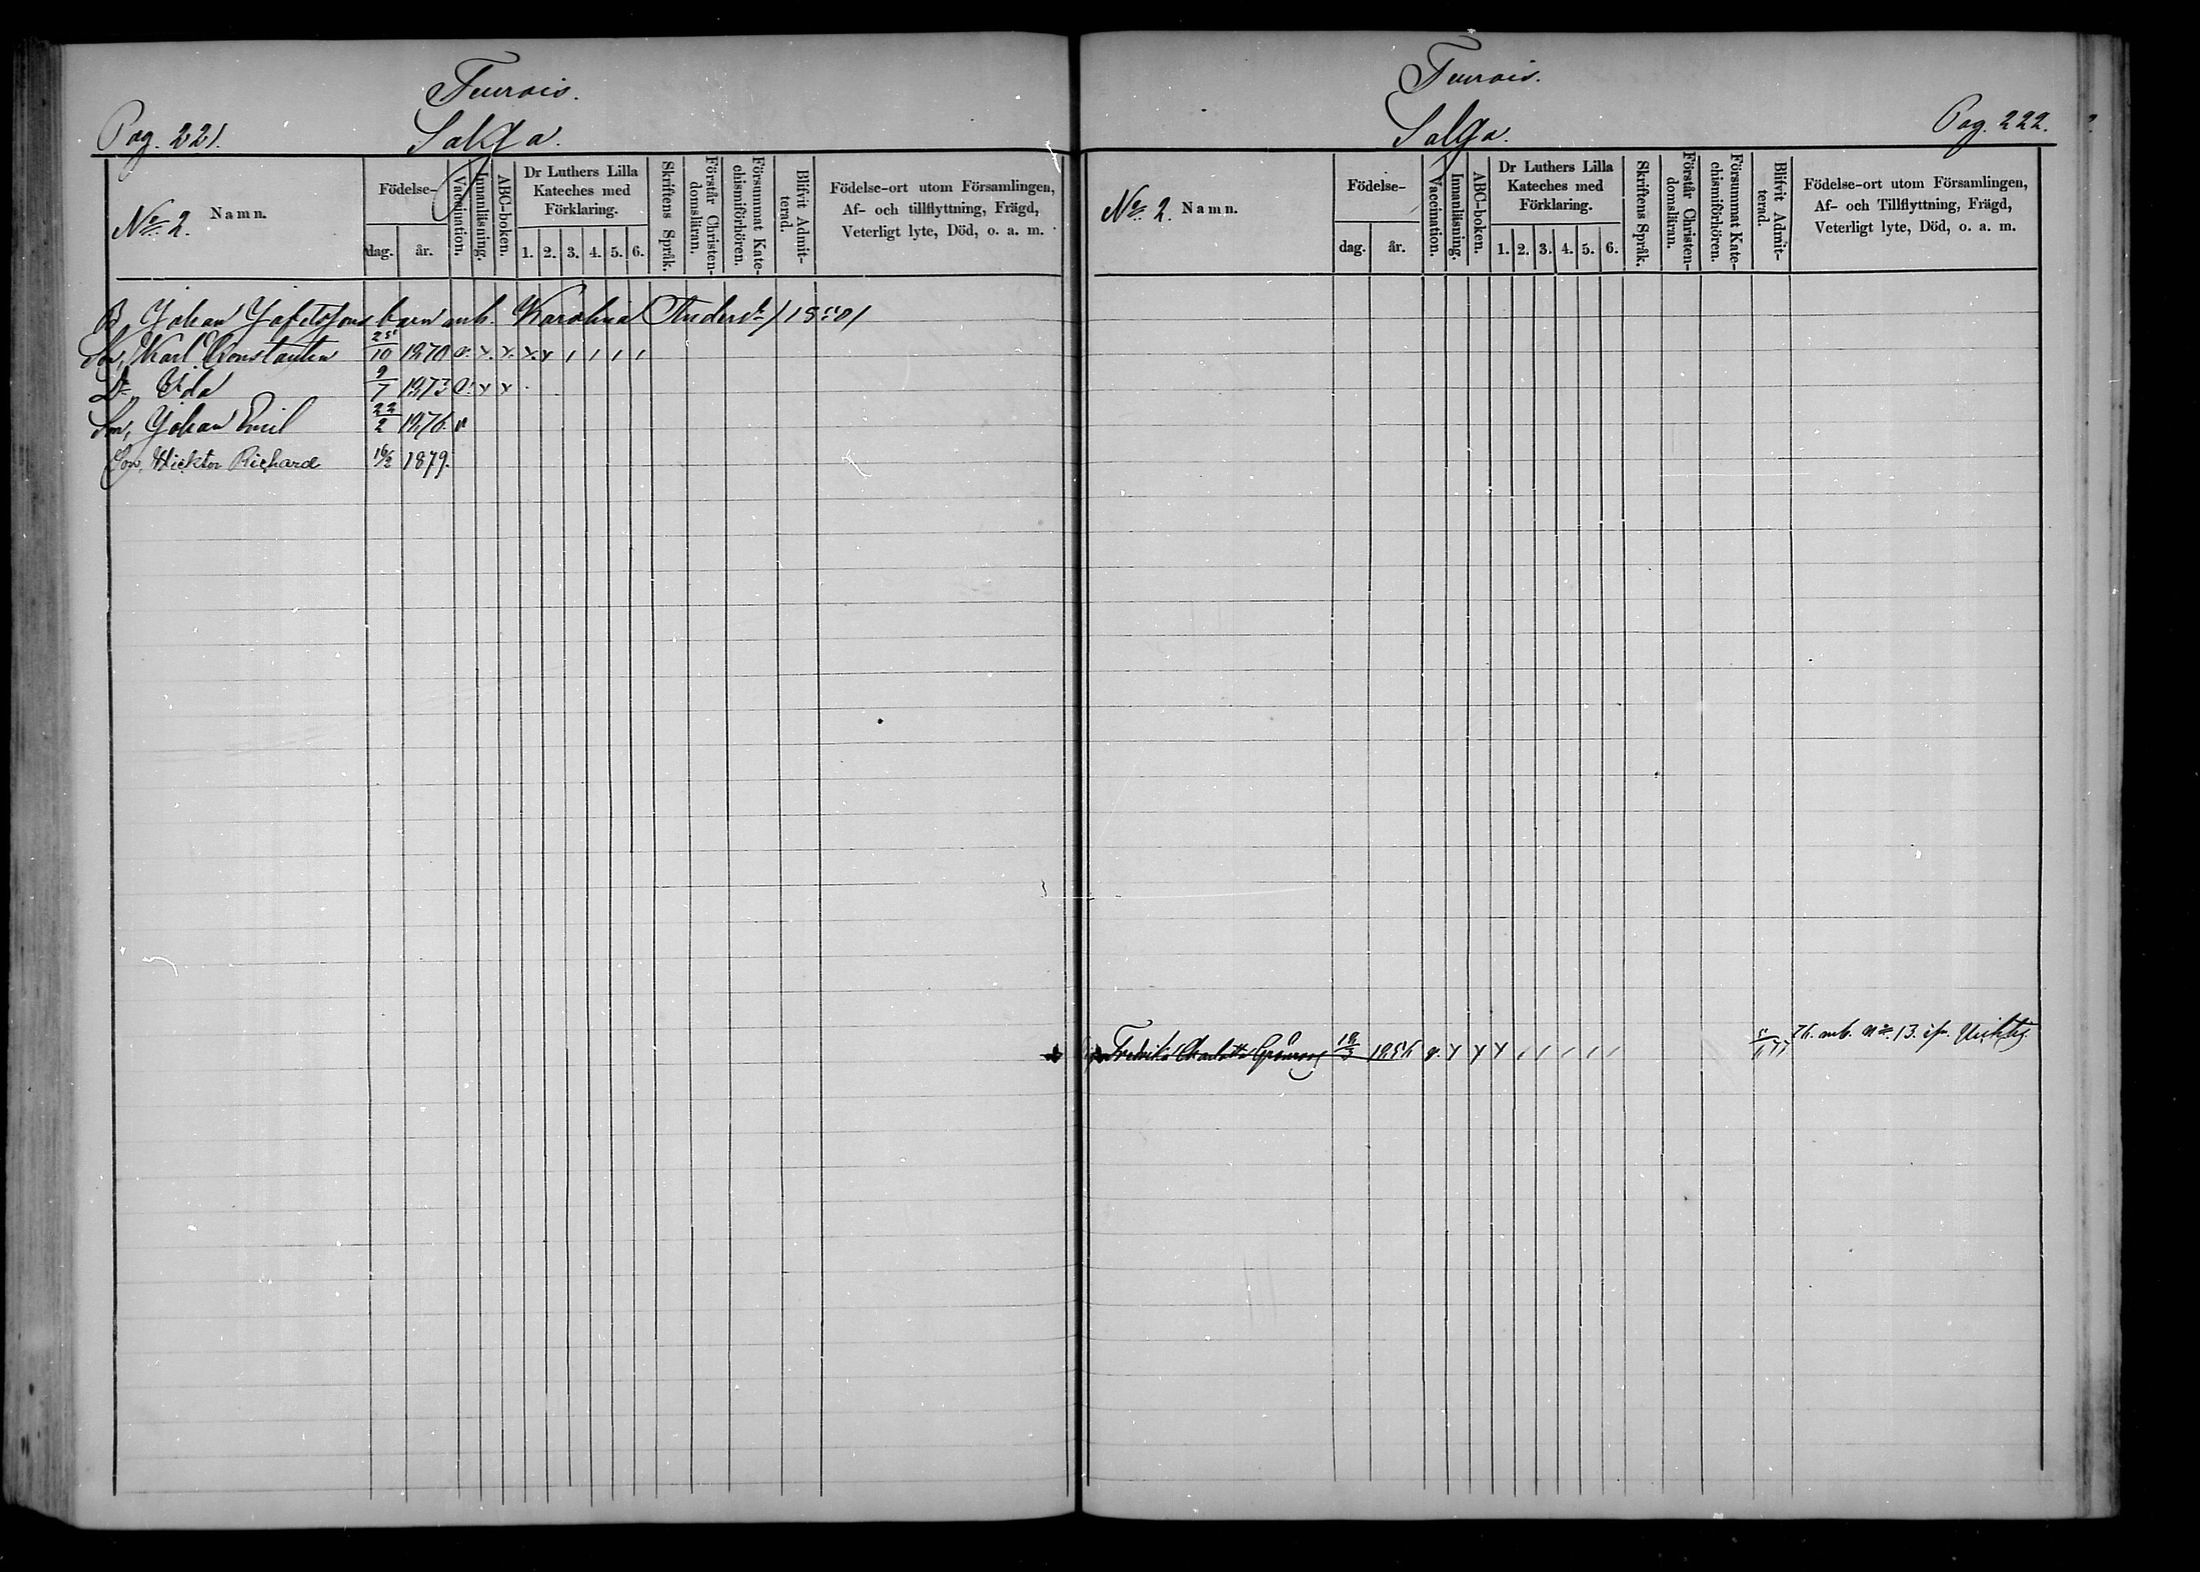 Pag. 221.
Salga.
No 2. Namn.
Födelse-
dag. år.
Vaccination.
Innanläsning.
ABC-boken.
Dr Luthers Lilla
Kateches med
Förklaring.
1. 2. 3. 4. 5. 6.
Skriftens Språk.
Förstår Christen-
domsläran.
Försummat Kate-
chismiförhören.
Blifvit Admit-
terad.
Födelse-ort utom Församlingen,
Af- och tillflyttning, Frägd,
Veterligt lyte, Död, o. a. m.
Johan barn m. Karolina 1850/
Son, Karl Konstantin 25/10 1870 v. x. x. x. x / / / /
Dr, Ida 9/7 1873 v. x x
Son, Johan Emil 22/2 1876 v
Son, Wicktor Richard 16/2 1879.
Salga.
Pag. 222.
No 2. Namn.
Födelse-
dag. år.
Vaccination.
Innanläsning.
ABC-boken.
Dr Luthers Lilla
Kateches med
Förklaring.
1. 2. 3. 4. 5. 6.
Skriftens Språk.
Förstår Christen-
domsläran.
Försummat Kate-
chismiförhören.
Blifvit Admit-
terad.
Födelse-ort utom Församlingen,
Af- och Tillflyttning, Frägd,
Veterligt lyte, Död, o. a. m.
Fredrika Charlotta Grönroos v. x x x / / / / / 76. No 13.